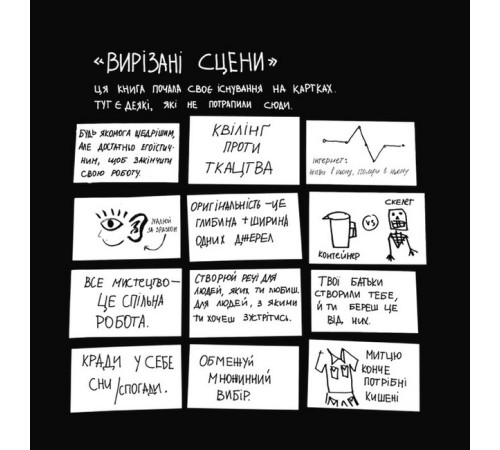 «ВИРІЗАНІ СЦЕНИ»
ЦЯ КНИГА ПОЧАЛА СВОЄ ІСНУВАННЯ НА КАРТКАХ.
ТУТ Є ДЕЯКІ, ЯКІ НЕ ПОТРАПИЛИ СЮДИ.
БУДЬ ЯКОМОГА ЩЕДРІШИМ,
АЛЕ ДОСТАТНЬО ЕГОЇСТИЧ-
НИМ, ЩОБ ЗАКІНЧИТИ
СВОЮ РОБОТУ.
КВІЛІНГ
ПРОТИ
ТКАЦТВА
інтернет:
живи в ньому, помри в ньому
МАЛЮЙ
ЗА ЗРАЗКОМ
ОРИГІНАЛЬНІСТЬ -ЦЕ
ГЛИБИНА + ШИРИНА
ОДНИХ ДЖЕРЕЛ
СКЕЛЕТ
VS
КОНТЕЙНЕР
ВСЕ МИСТЕЦТВО —
ЦЕ СПІЛЬНА
РОБОТА.
СТВОРЮЙ РЕЧІ ДЛЯ
ЛЮДЕЙ, ЯКИХ ТИ ЛЮБИШ.
ДЛЯ ЛЮДЕЙ, З ЯКИМИ
ТИ ХОЧЕШ ЗУСТРІТИСЬ.
ТВОЇ БАТЬКИ
СТВОРИЛИ ТЕБЕ,
Й ТИ БЕРЕШ ЦЕ
ВІД НИХ.
КРАДИ У СЕБЕ
СНИ
/СПОГАДИ.
ОБМЕЖУЙ
МНОЖИННИЙ
ВИБІР.
МИТЦЮ
КОНЧЕ
ПОТРІБНІ
КИШЕНІ